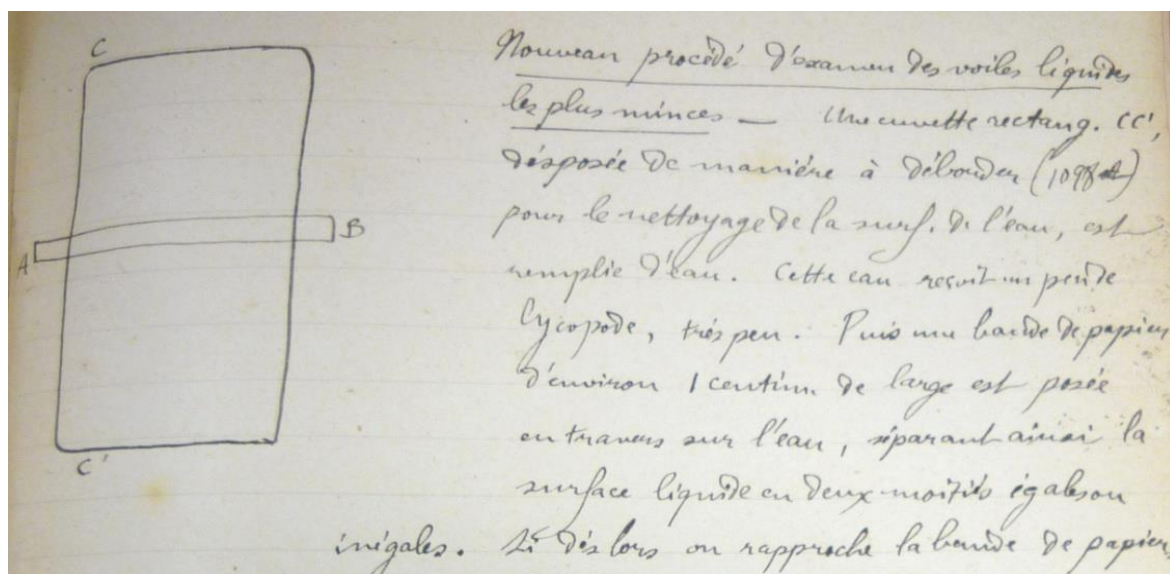 C
Nouveau procédé d'examen des voiles liquides
les plus minces — Une cuvette rectang. CC',
disposée de manière à déborder (1098)
pour le nettoyage de la surf. de l'eau, est
A
B
remplie d'eau. Cette eau reçoit un peu de
lycopode, très peu. Puis une bande de papier
d'environ 1 centim. de large est posée
en travers sur l'eau, séparant ainsi la
C'
surface liquide en deux moitiés égales ou
inégales. Si dès lors on rapproche la bande de papier,